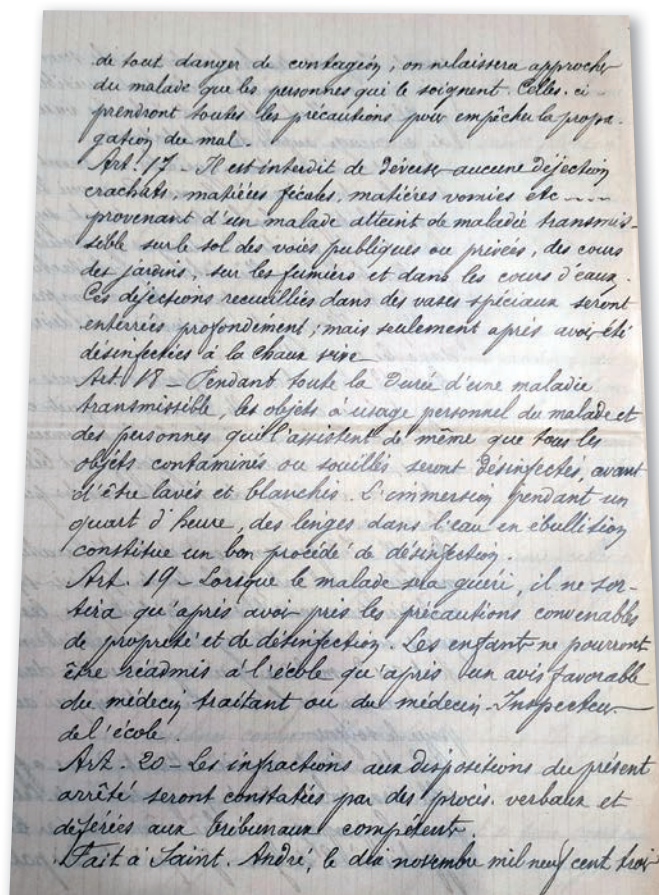 de tout danger de contagion, on ne laissera approcher
du malade que les personnes qui le soignent. Celles-ci
prendront toutes les précautions pour empêcher la propa-
gation du mal.
Art. 17 - Il est interdit de déverser aucune déjection
crachats, matières fécales, matières vomies etc ----
provenant d'un malade atteint de maladie transmis-
sible sur le sol des voies publiques ou privées, des cours
des jardins, sur les fumiers et dans les cours d'eaux.
Ces déjections recueillies dans des vases spéciaux seront
enterrées profondément, mais seulement après avoir été
désinfectées à la chaux vive
Art. 18 - Pendant toute la durée d'une maladie
transmissible, les objets à usage personnel du malade et
des personnes qui l'assistent de même que tous les
objets contaminés ou souillés seront désinfectés, avant
d'être lavés et blanchis. L'immersion pendant un
quart d'heure, des linges dans l'eau en ébullition
constitue un bon procédé de désinfection.
Art. 19 - Lorsque le malade sera guéri, il ne sor-
tira qu'après avoir pris les précautions convenables
de propreté et de désinfection. Les enfant ne pourront
être réadmis à l'école qu'après un avis favorable
du médecin traitant ou du médecin-Inspecteur
de l'école.
Art. 20 - Les infractions aux dispositions du présent
arrêté seront constatées par des procès-verbaux et
déférées aux tribunaux compétent.
Fait à Saint-André, le dix novembre mil neuf cent trois